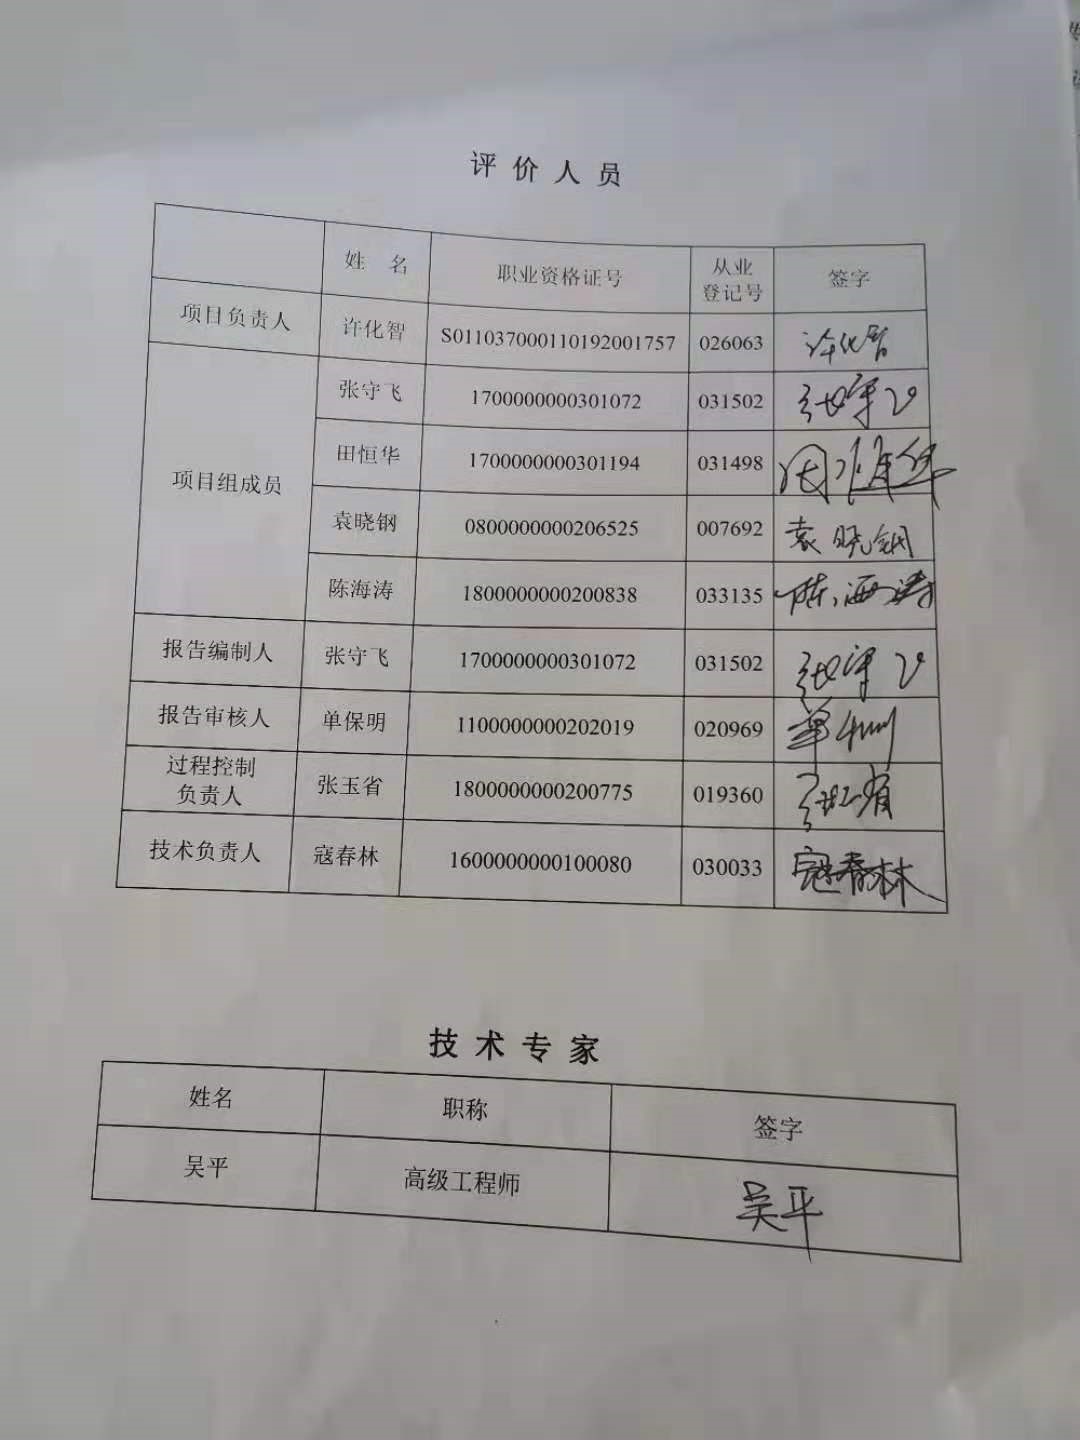 评价人员
姓 名 职业资格证号 从业登记号 签字
项目负责人 许化智 S011037000110192001757 026063 许化智
项目组成员 张守飞 1700000000301072 031502 张守飞
田恒华 1700000000301194 031498 田恒华
袁晓钢 0800000000206525 007692 袁晓钢
陈海涛 1800000000200838 033135 陈海涛
报告编制人 张守飞 1700000000301072 031502 张守飞
报告审核人 单保明 1100000000202019 020969 单保明
过程控制负责人 张玉省 1800000000200775 019360 张玉省
技术负责人 寇春林 1600000000100080 030033 寇春林
技术专家
姓名 职称 签字
吴平 高级工程师 吴平